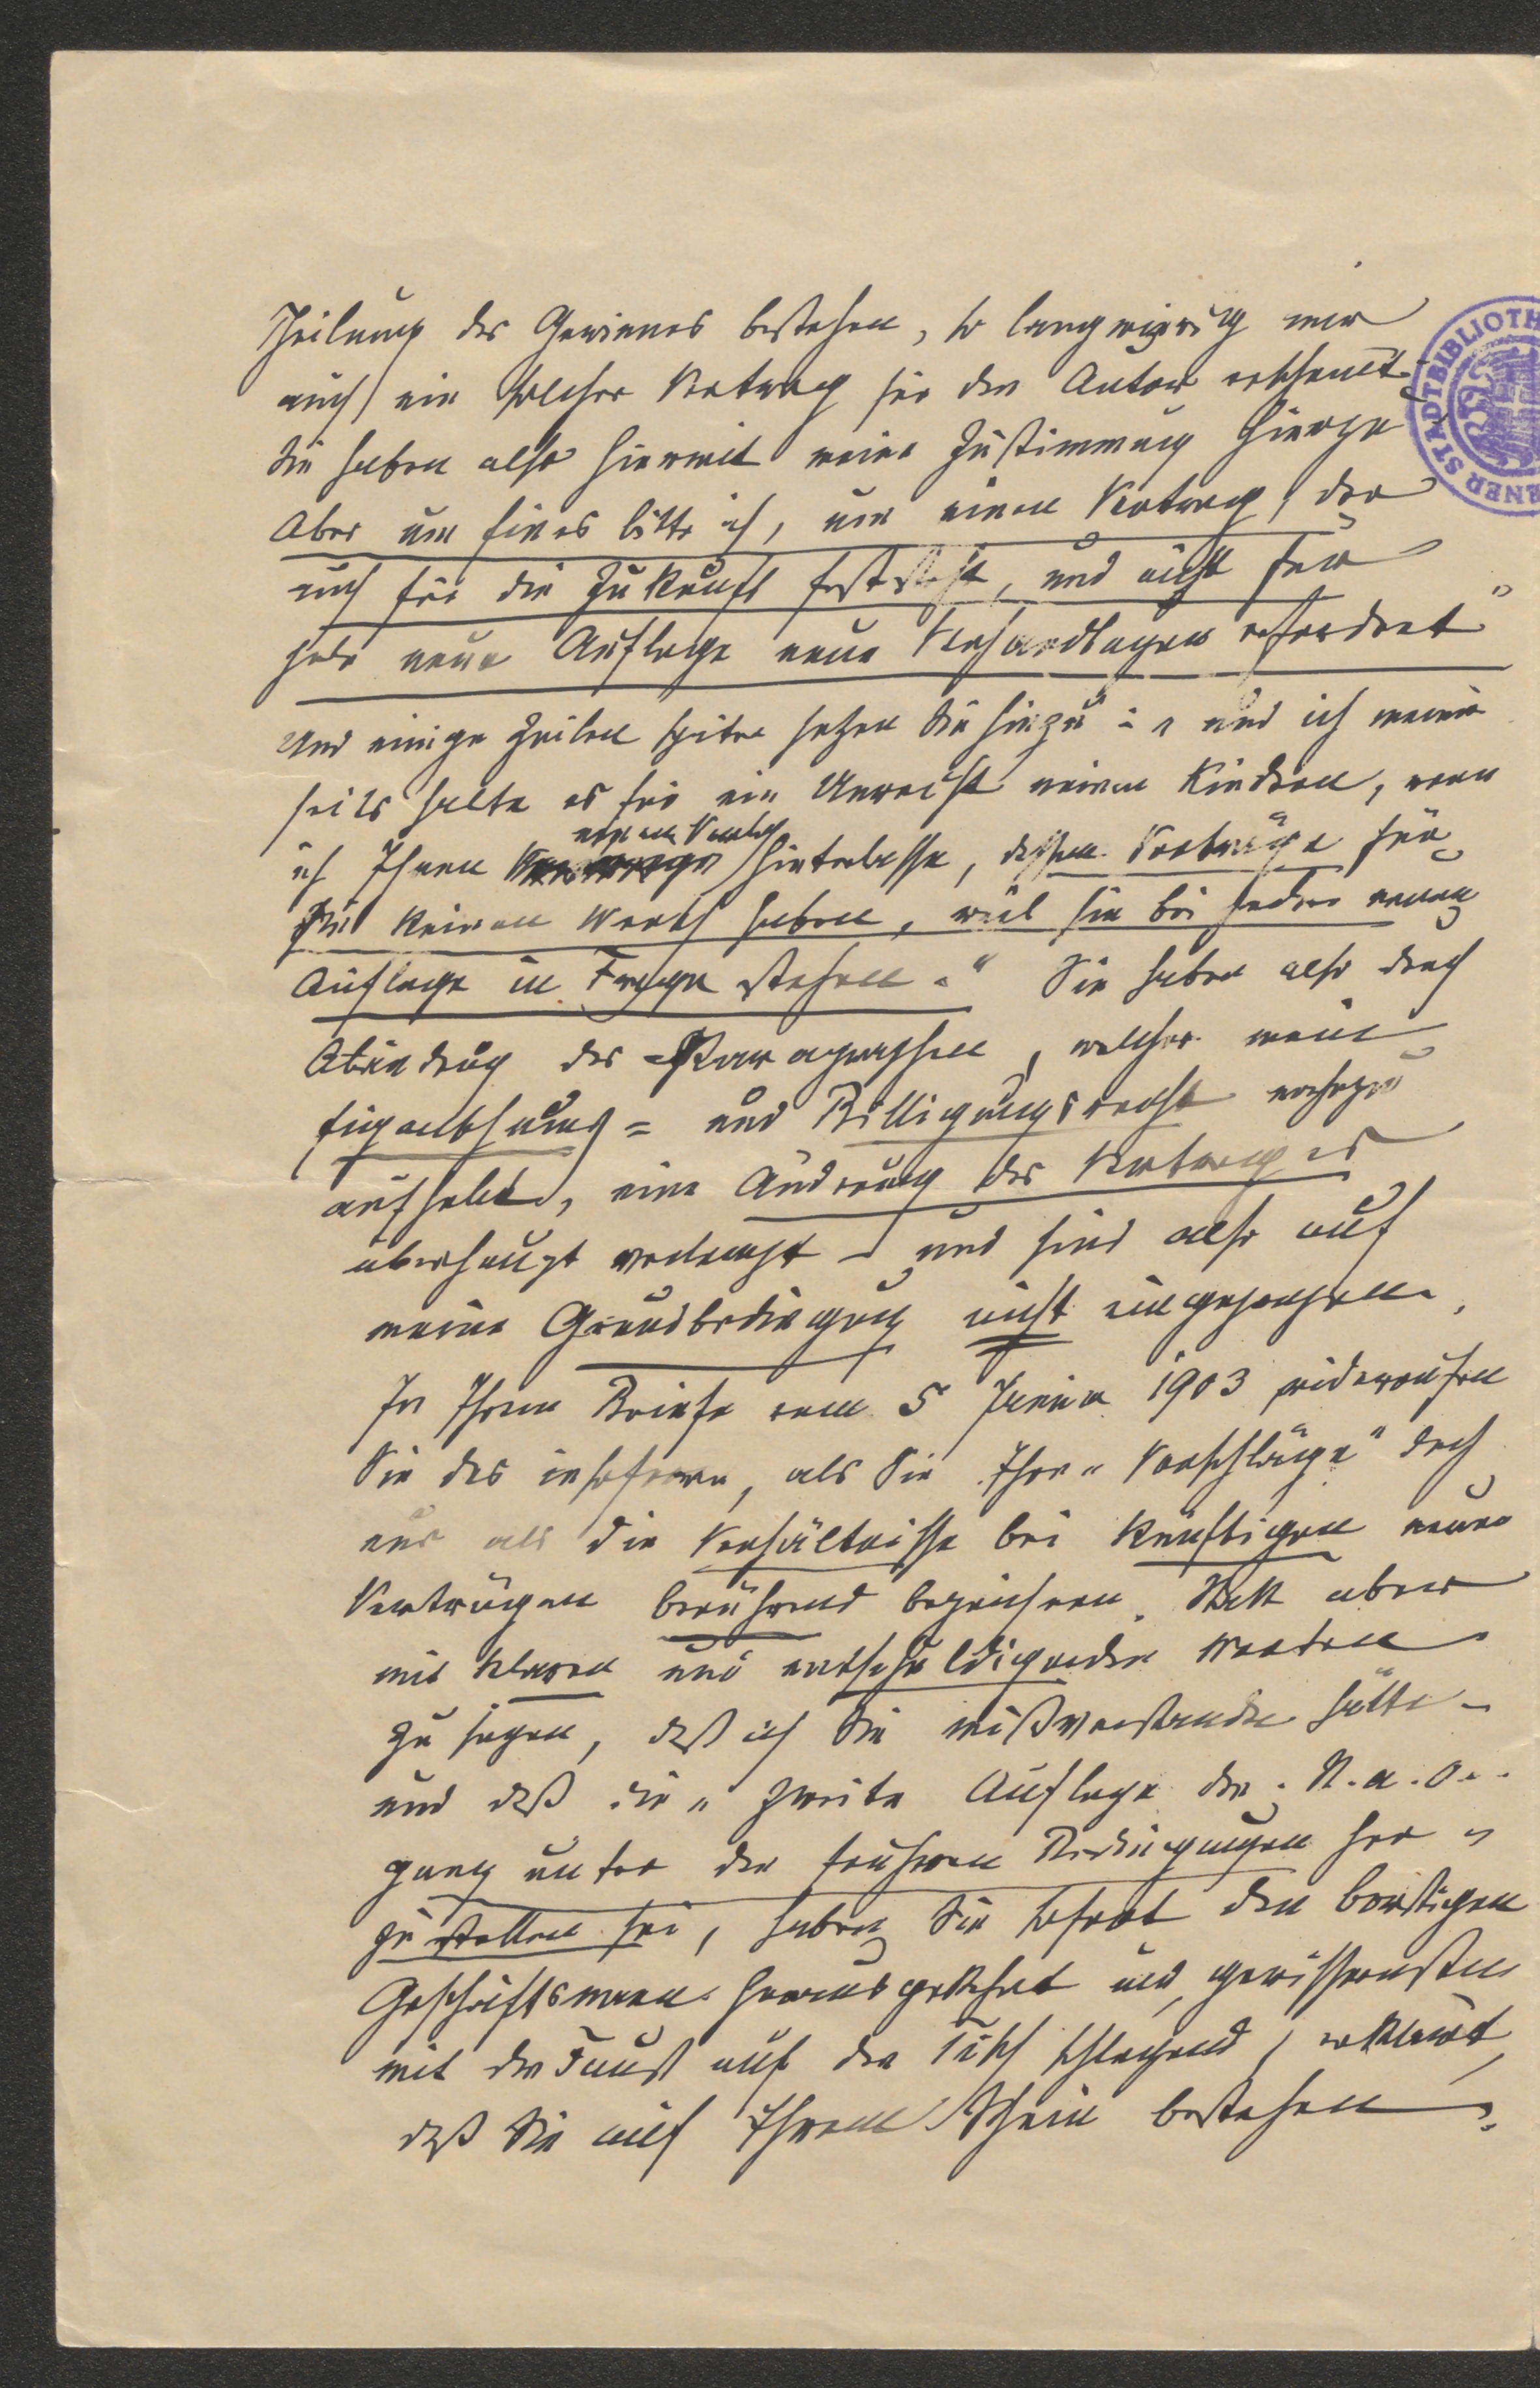 Theilung des Gewinnes bestehen, so langwierig mir
auch ein solcher Vertrag für den Autor erscheint.
Sie haben also hiermit meine Zustimmung hierzu
Aber um Eines bitte ich, um einen Vertrag, der
auch für die Zukunft feststeht, und nicht für
jede neue Auflage neue Verhandlagen erfordert"
Und einige Zeilen später setzen Sie hinzu: „ und ich meiner
seits halte es für ein Unrecht meinen Kindern, wenn
ich Ihnen einen Verlag hinterlasse, dessen Verträge für
sie keinen Werth haben, weil sie bei jeder neuen
Auflage in Frage stehen." Sie haben also durch
des Paragraphen, welcher mein
Eigenthums= und Billigungsrecht
aufhebt, eine Änderung des Vertrages
überhaupt verlangt – und sind also auf
meine Grundbedingung nicht eingegangen.
In Ihrem Briefe vom 5 1903 widerrufen
Sie das insofern, als Sie Ihre „Vorschläge" doch
nur als die Verhältnisse bei künftigen neuen
Verträgen berührend bezeichnen. Statt aber
mit klaren und entschuldigenden Worten
zu sagen, daß ich Sie mißverstanden hätte –
und daß die „ zweite Auflage der N. a. O..
ganz unter den früheren Bedingungen her „
zustellen sei, haben Sie sofort den
Geschäftsmann herausgekehrt und,
mit der Faust auf den Tisch schlagend, erklärt,
daß Sie auf Ihrem Schein bestehen.
STADTBIBLIOTH